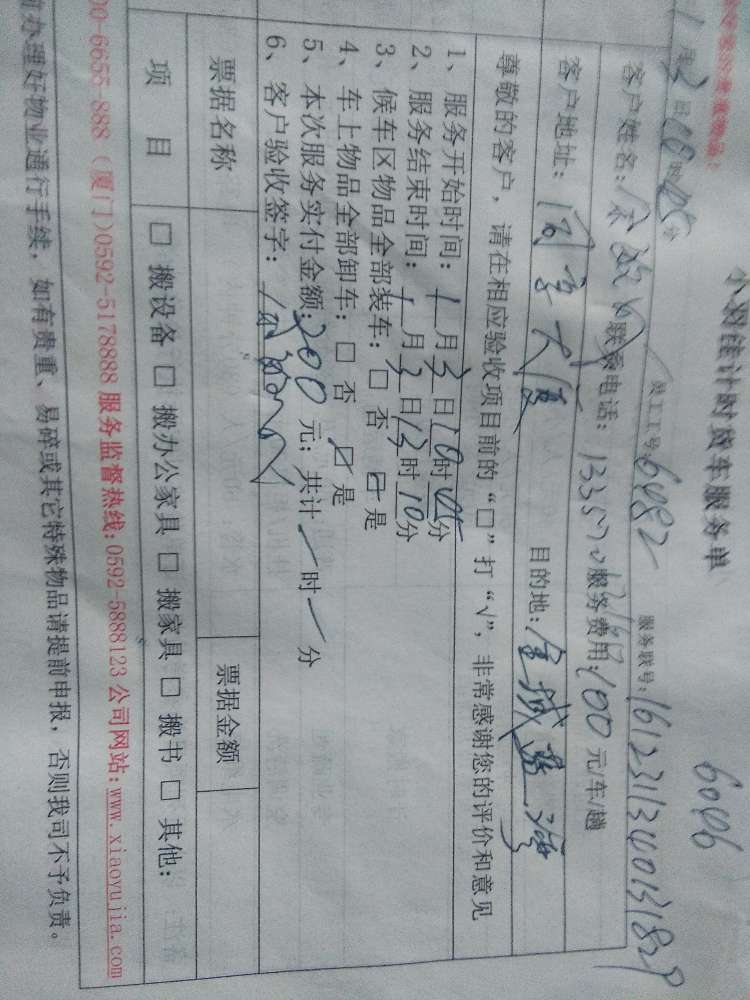 小羽佳计时货车服务单
6006
员工工号：6482 服务联号：161231134013182
1月3日10时05分
客户姓名： 联系电话： 服务费用：100元/车/趟
客户地址： 大厦 目的地：
尊敬的客户，请在相应验收项目前的“□”打“√”，非常感谢您的评价和意见
1、服务开始时间：1月3日10时05分
2、服务结束时间：1月3日13时10分
3、候车区物品全部装车：□ 否 ☑ 是
4、车上物品全部卸车：□ 否 ☑ 是
5、本次服务实付金额：200元；共计 时 分
6、客户验收签字：
票据名称 票据金额
项 目 □ 搬设备 □ 搬办公家具 □ 搬家具 □ 搬书 □ 其他：
00-6655-888（厦门）0592-5178888 服务监督热线：0592-5888123 公司网站：www.xiaoyujia.com
办理好物业通行手续，如有贵重、易碎或其它特殊物品请提前申报，否则我司不予负责。